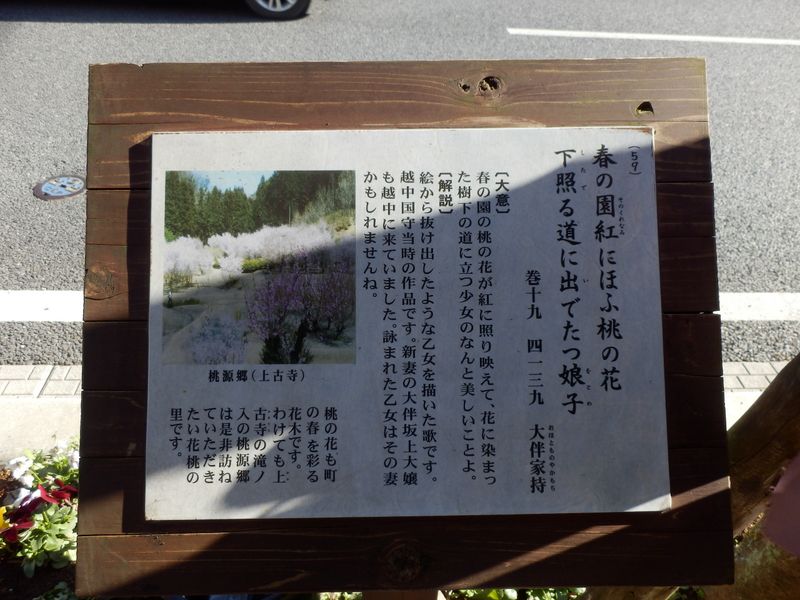 (59)
春の園紅にほふ桃の花
そのくれなゐ
下照る道に出でたつ娘子
したで
い
をとめ
巻十九 四一三九 大伴家持
おほとものやかもち
〔大意〕
春の園の桃の花が紅に照り映えて、花に染まっ
た樹下の道に立つ少女のなんと美しいことよ。
〔解説〕
絵から抜け出したような乙女を描いた歌です。
越中国守当時の作品です。新妻の大伴坂上大嬢
も越中に来ていました。詠まれた乙女はその妻
かもしれませんね。
桃源郷(上古寺)
桃の花も町
の春を彩る
花木です。
わけても上
古寺の滝ノ
入の桃源郷
は是非訪ね
ていただき
たい花桃の
里です。